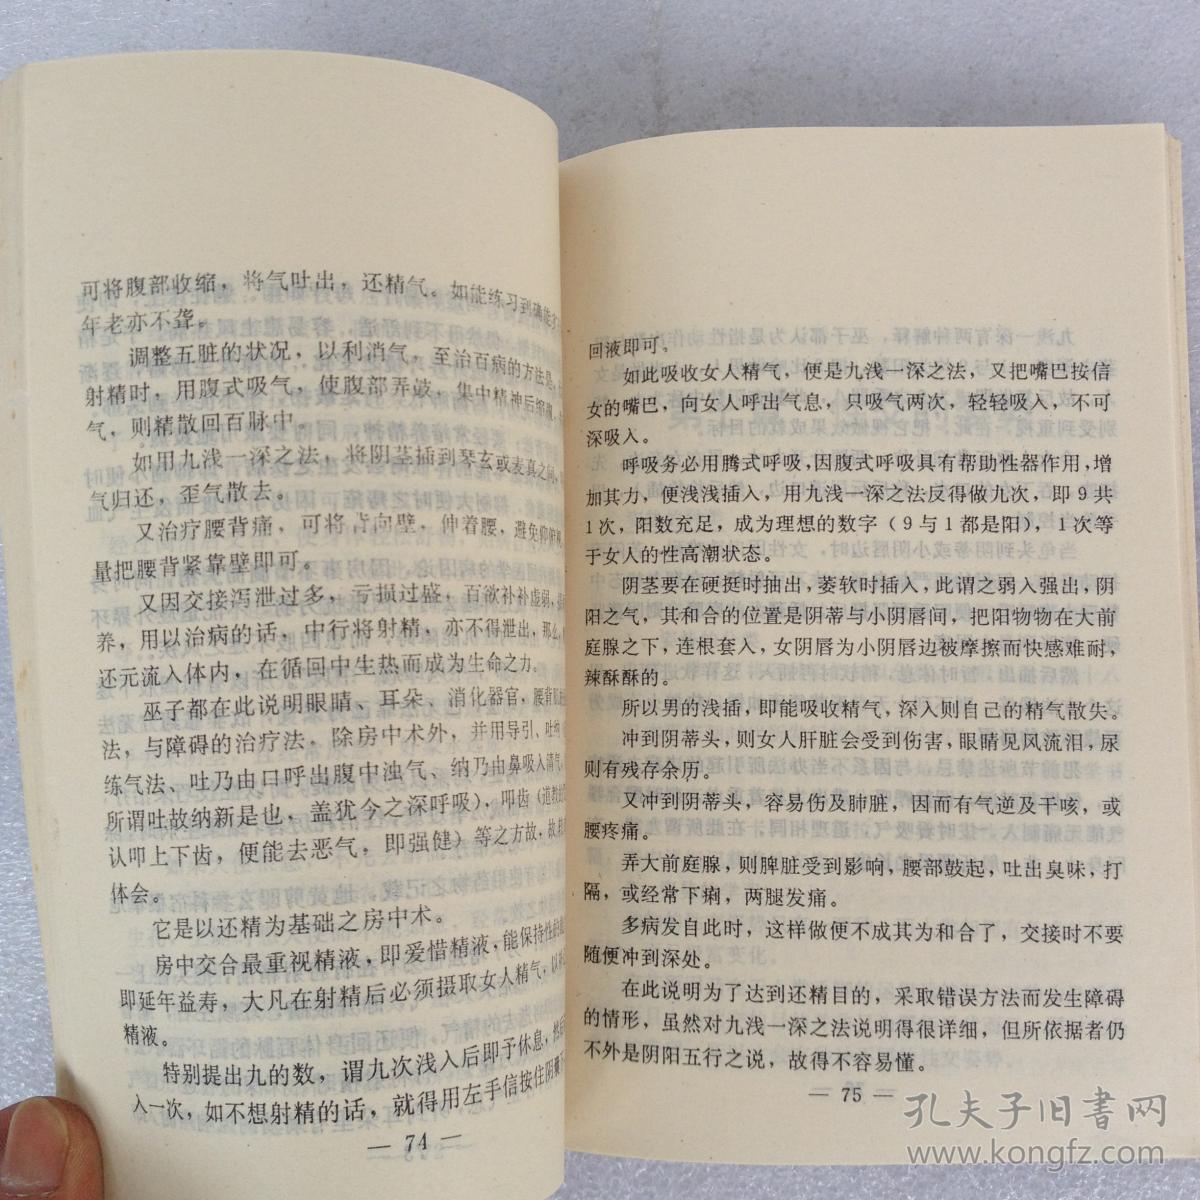 可将腹部收缩，将气吐出，还精气。如能练习到确能
年老亦不聋。
调整五脏的状况，以利消气，至治百病的方法是，
射精时，用腹式吸气，使腹部弄鼓，集中精神后缩
气，则精散回百脉中。
如用九浅一深之法，将阴茎插到琴玄或麦真之间，
气归还，歪气散去。
又治疗腰背痛，可将背向壁，伸着腰，避免仰俯
量把腰背紧靠壁即可。
又因交接泻泄过多，亏损过盛，百欲补补虚弱，
养，用以治病的话，中行将射精，亦不得泄出，那么，
还元流入体内，在循回中生热而成为生命之力。
巫子都在此说明眼睛、耳朵、消化器官，腰背
法，与障碍的治疗法．除房中术外，并用导引、吐纳
练气法、吐乃由口呼出腹中浊气、纳乃由鼻吸入清气，
所谓吐故纳新是也，盖犹今之深呼吸），叩齿（道教
认叩上下齿，便能去恶气，即强健）等之方故，故
体会。
它是以还精为基础之房中术。
房中交合最重视精液，即爱惜精液，能保持性
即延年益寿，大凡在射精后必须摄取女人精气，以
精液。
特别提出九的数，谓九次浅入后即予休息，然后
入一次，如不想射精的话，就得用左手信按住阴囊
— 74 —
回液即可。
如此吸收女人精气，便是九浅一深之法，又把嘴巴按信
女的嘴巴，向女人呼出气息，只吸气两次，轻轻吸入，不可
深吸入。
呼吸务必用腾式呼吸，因腹式呼吸具有帮助性器作用，增
加其力，便浅浅插入，用九浅一深之法反得做九次，即9共
1次，阳数充足，成为理想的数字（9与1都是阳），1次等
于女人的性高潮状态。
阴茎要在硬挺时抽出，萎软时插入，此谓之弱入强出，阴
阳之气，其和合的位置是阴蒂与小阴唇间，把阳物物在大前
庭腺之下，连根套入，女阴唇为小阴唇边被摩擦而快感难耐，
辣酥酥的。
所以男的浅插，即能吸收精气，深入则自己的精气散失。
冲到阴蒂头，则女人肝脏会受到伤害，眼睛见风流泪，尿
则有残存余历。
又冲到阴蒂头，容易伤及肺脏，因而有气逆及干咳，或
腰疼痛。
弄大前庭腺，则脾脏受到影响，腰部鼓起，吐出臭味，打
隔，或经常下痢，两腿发痛。
多病发自此时，这样做便不成其为和合了，交接时不要
随便冲到深处。
在此说明为了达到还精目的，采取错误方法而发生障碍
的情形，虽然对九浅一深之法说明得很详细，但所依据者仍
不外是阴阳五行之说，故得不容易懂。
— 75 —
孔夫子旧书网
www.kongfz.com